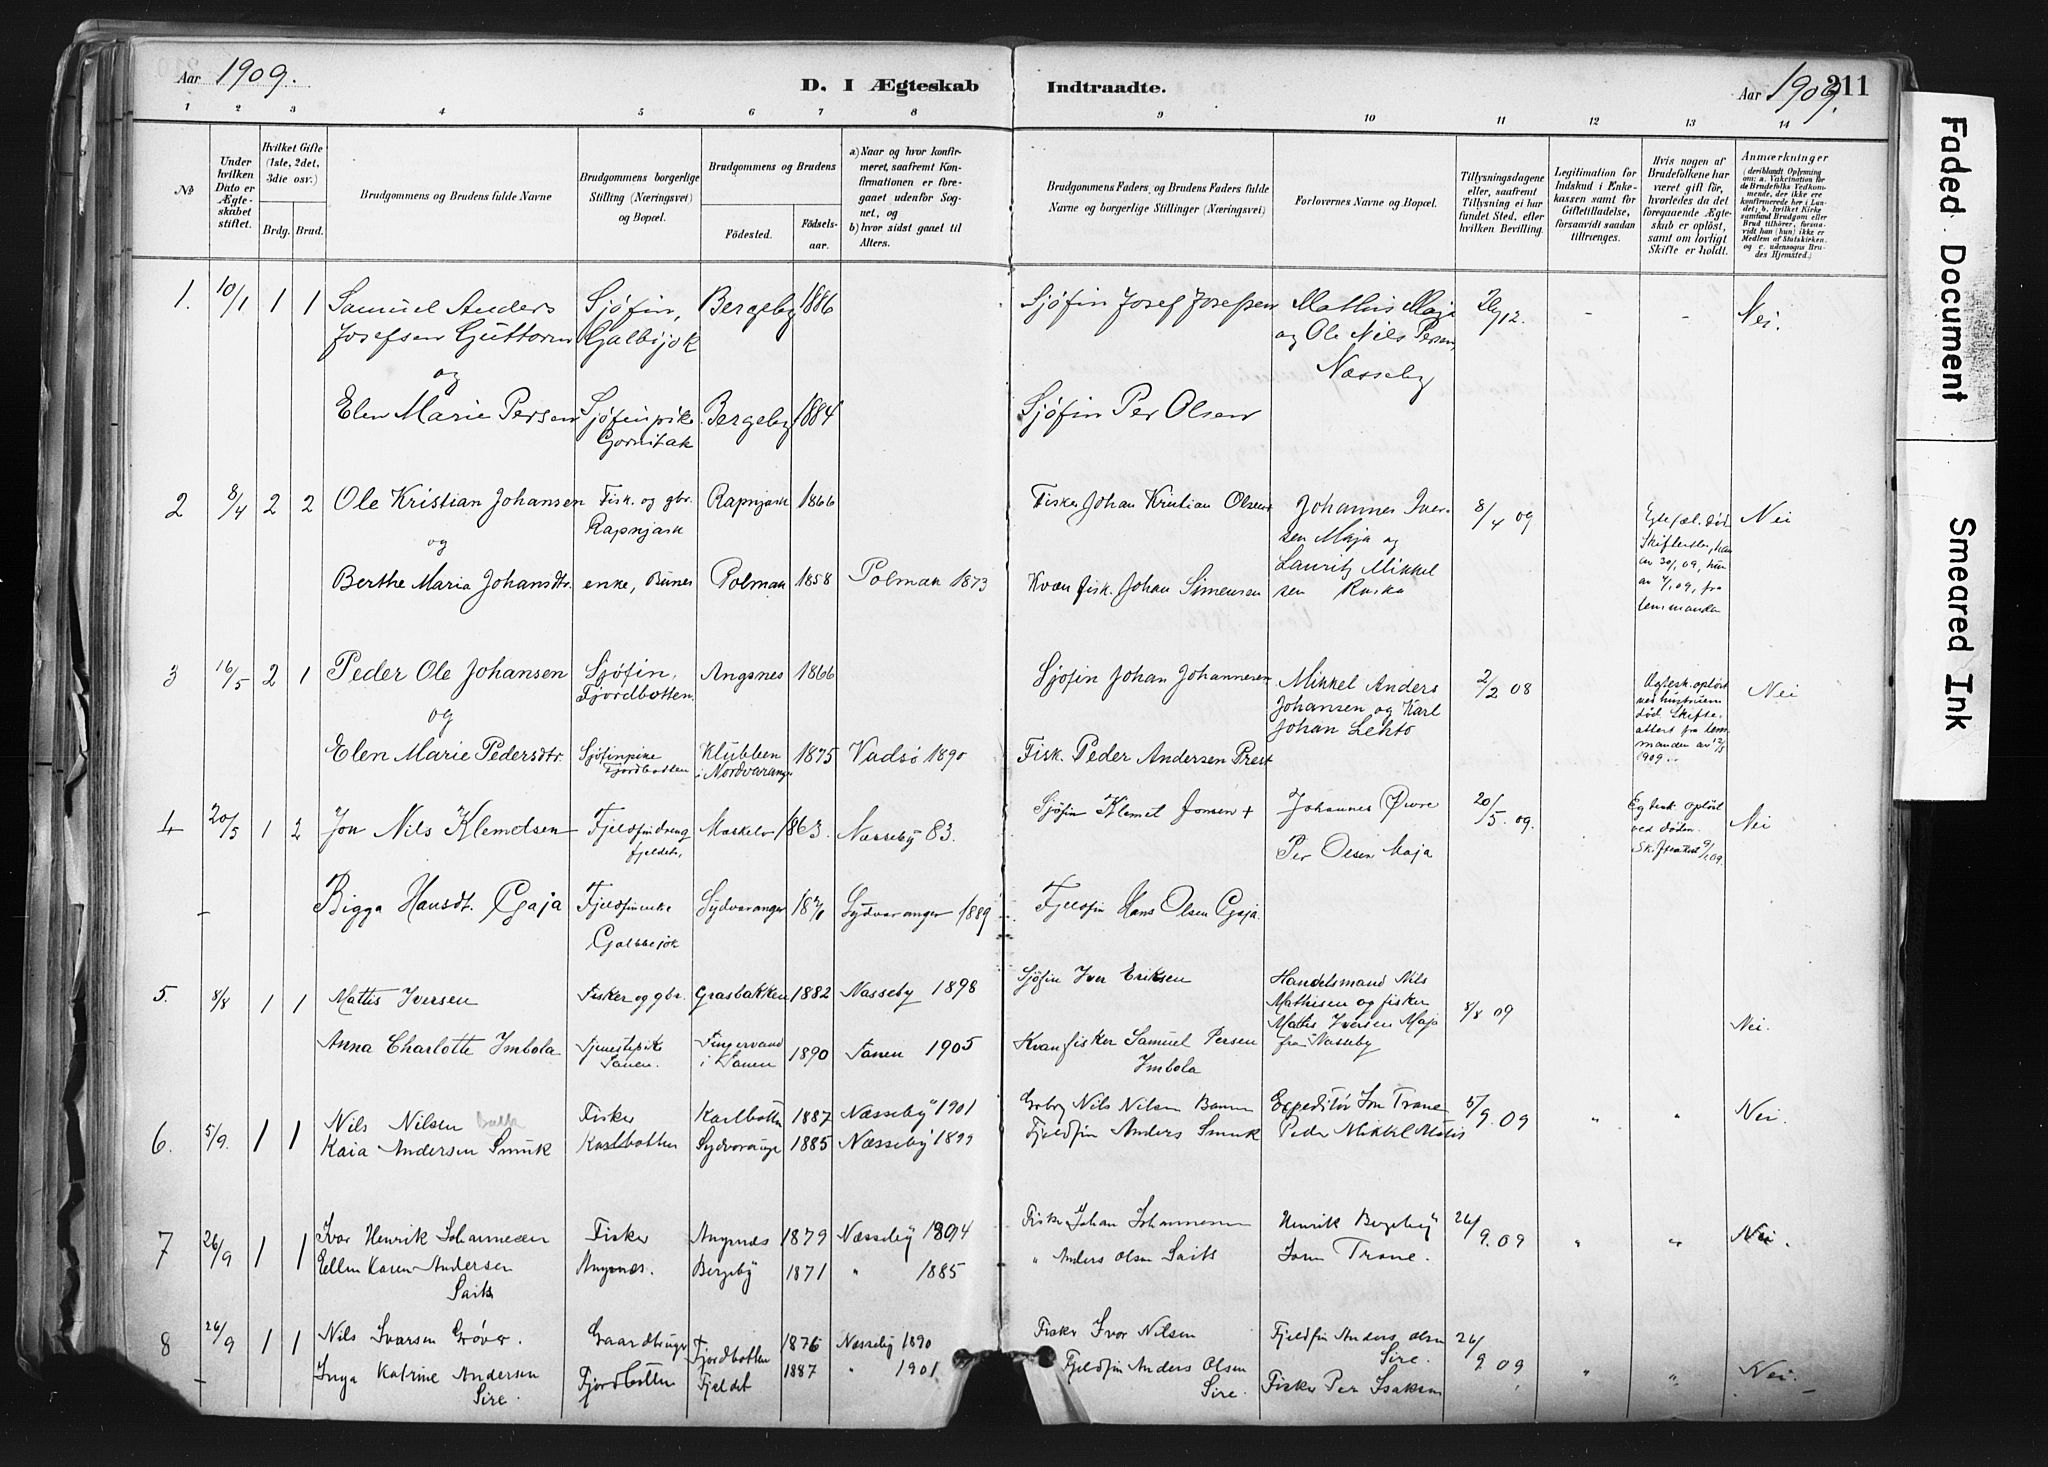 Aar 1909.
D. I Ægteskab Indtraadte.
Aar 1909. 211
1 2 3 4 5 6 7 8 9 10 11 12 13 14
No
Under hvilken Dato er Ægteskabet stiftet.
Hvilket Gifte (1ste, 2det, 3die osv.)
Brdg. Brud.
Brudgommens og Brudens fulde Navne
Brudgommens borgerlige Stilling (Næringsvei) og Bopæl.
Brudgommens og Brudens
Fødested. Fødselsaar.
a) Naar og hvor konfirmeret, saafremt Konfirmationen er foregaaet udenfor Sognet, og
b) hvor sidst gaaet til Alters.
Brudgommens Faders, og Brudens Faders fulde Navne og borgerlige Stillinger (Næringsvei)
Forlovernes Navne og Bopæl.
Tillysningsdagene eller, saafremt Tillysning ei har fundet Sted, efter hvilken Bevilling.
Legitimation for Indskud i Enkekassen samt for Giftetilladelse, forsaavidt saadan tiltrænges.
Hvis nogen af Brudefolkene har været gift før, hvorledes da det foregaaende Ægteskab er opløst, samt om lovligt Skifte er holdt.
Anmærkninger
(deriblandt Oplysning om: a. Vakcination for de Brudefolks Vedkommende, der ikke ere konfirmerede her i Landet; b. hvilket Kirkesamfund Brudgom eller Brud tilhører, forsaavidt han (hun) ikke er Medlem af Statskirken, og c. udensogns Brudes Hjemsted.)
1. 10/1 1 1 Samuel Anders Sjøfin, Bergeby 1886 Sjøfin Josef Josefsen Mathis Maja 26/12. - - Nei.
Josefsen Guttorm Galbijok og Ole Nils Persen,
og Næsseby
Elen Marie Persen Sjøfinpike Bergeby 1884 Sjøfin Per Olsen
Gornitak
2 8/4 2 2 Ole Kristian Johansen Fisk. og gbr. Rapnjask 1866 Fisker Johan Kristian Olsen Johannes Iver- 8/4 09 Nei
Rapnjask sen Maja og
og Lauritz Mikkel
Berthe Maria Johansdtr. enke, Bunes Polmak 1858 Polmak 1873 Kvæn fisk. Johan Simensen sen Ruska
3 16/5 2 1 Peder Ole Johansen Sjøfin, Angsnes 1866 Sjøfin Johan Johannesen Mikkel Anders 2/2 08 Nei
Fjordbotten. Johansen og Karl
og Johan Lehto
Elen Marie Pedersdtr. Sjøfinpike Klubben 1875 Vadsø 1890 Fisk. Peder Andersen Prest
Fjordbotten i Nordvaranger
4 20/5 1 2 Jon Nils Klemetsen Fjeldfindreng Maskelv 1863. Næsseby 83. Sjøfin Klemet Jonsen + Johannes Øvre 20/5. 09. Nei
fjeldet, Per Olsen Maja
Bigga Hansdt. Gaja Fjeldfinenke Sydvaranger Sydvaranger 1889 Fjeldfin Hans Olsen Gaja.
Galbbejok
5. 8/8 1 1 Mattis Iversen Fisker og gbr. Grasbakken 1882 Næsseby 1898 Sjøfin Iver Eriksen Handelsmand Nils 8/8 09 Nei.
Mathisen og fisker
Mattis Iversen Maja
Anna Charlotte Imbola Tjenestepike Fingervand 1890 Tanen 1905 Kvænfisker Samuel Persen fra Næsseby
Tanen. i Tanen Imbola
6. 5/9. 1 1 Nils Nilsen Fisker Karlbotten 1887 Næsseby 1901 Nils Nilsen Expeditør Jon Trane 5/9. 09 " " Nei.
Kaia Andersen Smuk Karlbotten 1885 Næsseby 1899 Fjeldfin Anders Smuk Peder Mikkel
7 26/9 1 1 Ivar Henrik Johannesen Fisker Angsnæs 1879 Næsseby 1894 Fisker Johan Johannesen Henrik Bergeby 26/9. 09 " " Nei.
Ellen Karen Andersen Angsnæs. Bergeby 1871 " 1885 " Anders Olsen Saits John Trane.
Saits
8 26/9 1 1 Nils Ivarsen Grøver. Gaardbruger Fjordbotten 1876 Næsseby 1890 Fisker Ivar Nilsen Fjeldfin Anders Olsen 26/9 09 " " Nei.
Sire.
Inga Katrine Andersen Fjordbotten Fjeldet 1887 " 1901 Fjeldfin Anders Olsen Fisker Per Isaksen
Sire. Sire.
Faded Document
Smeared Ink